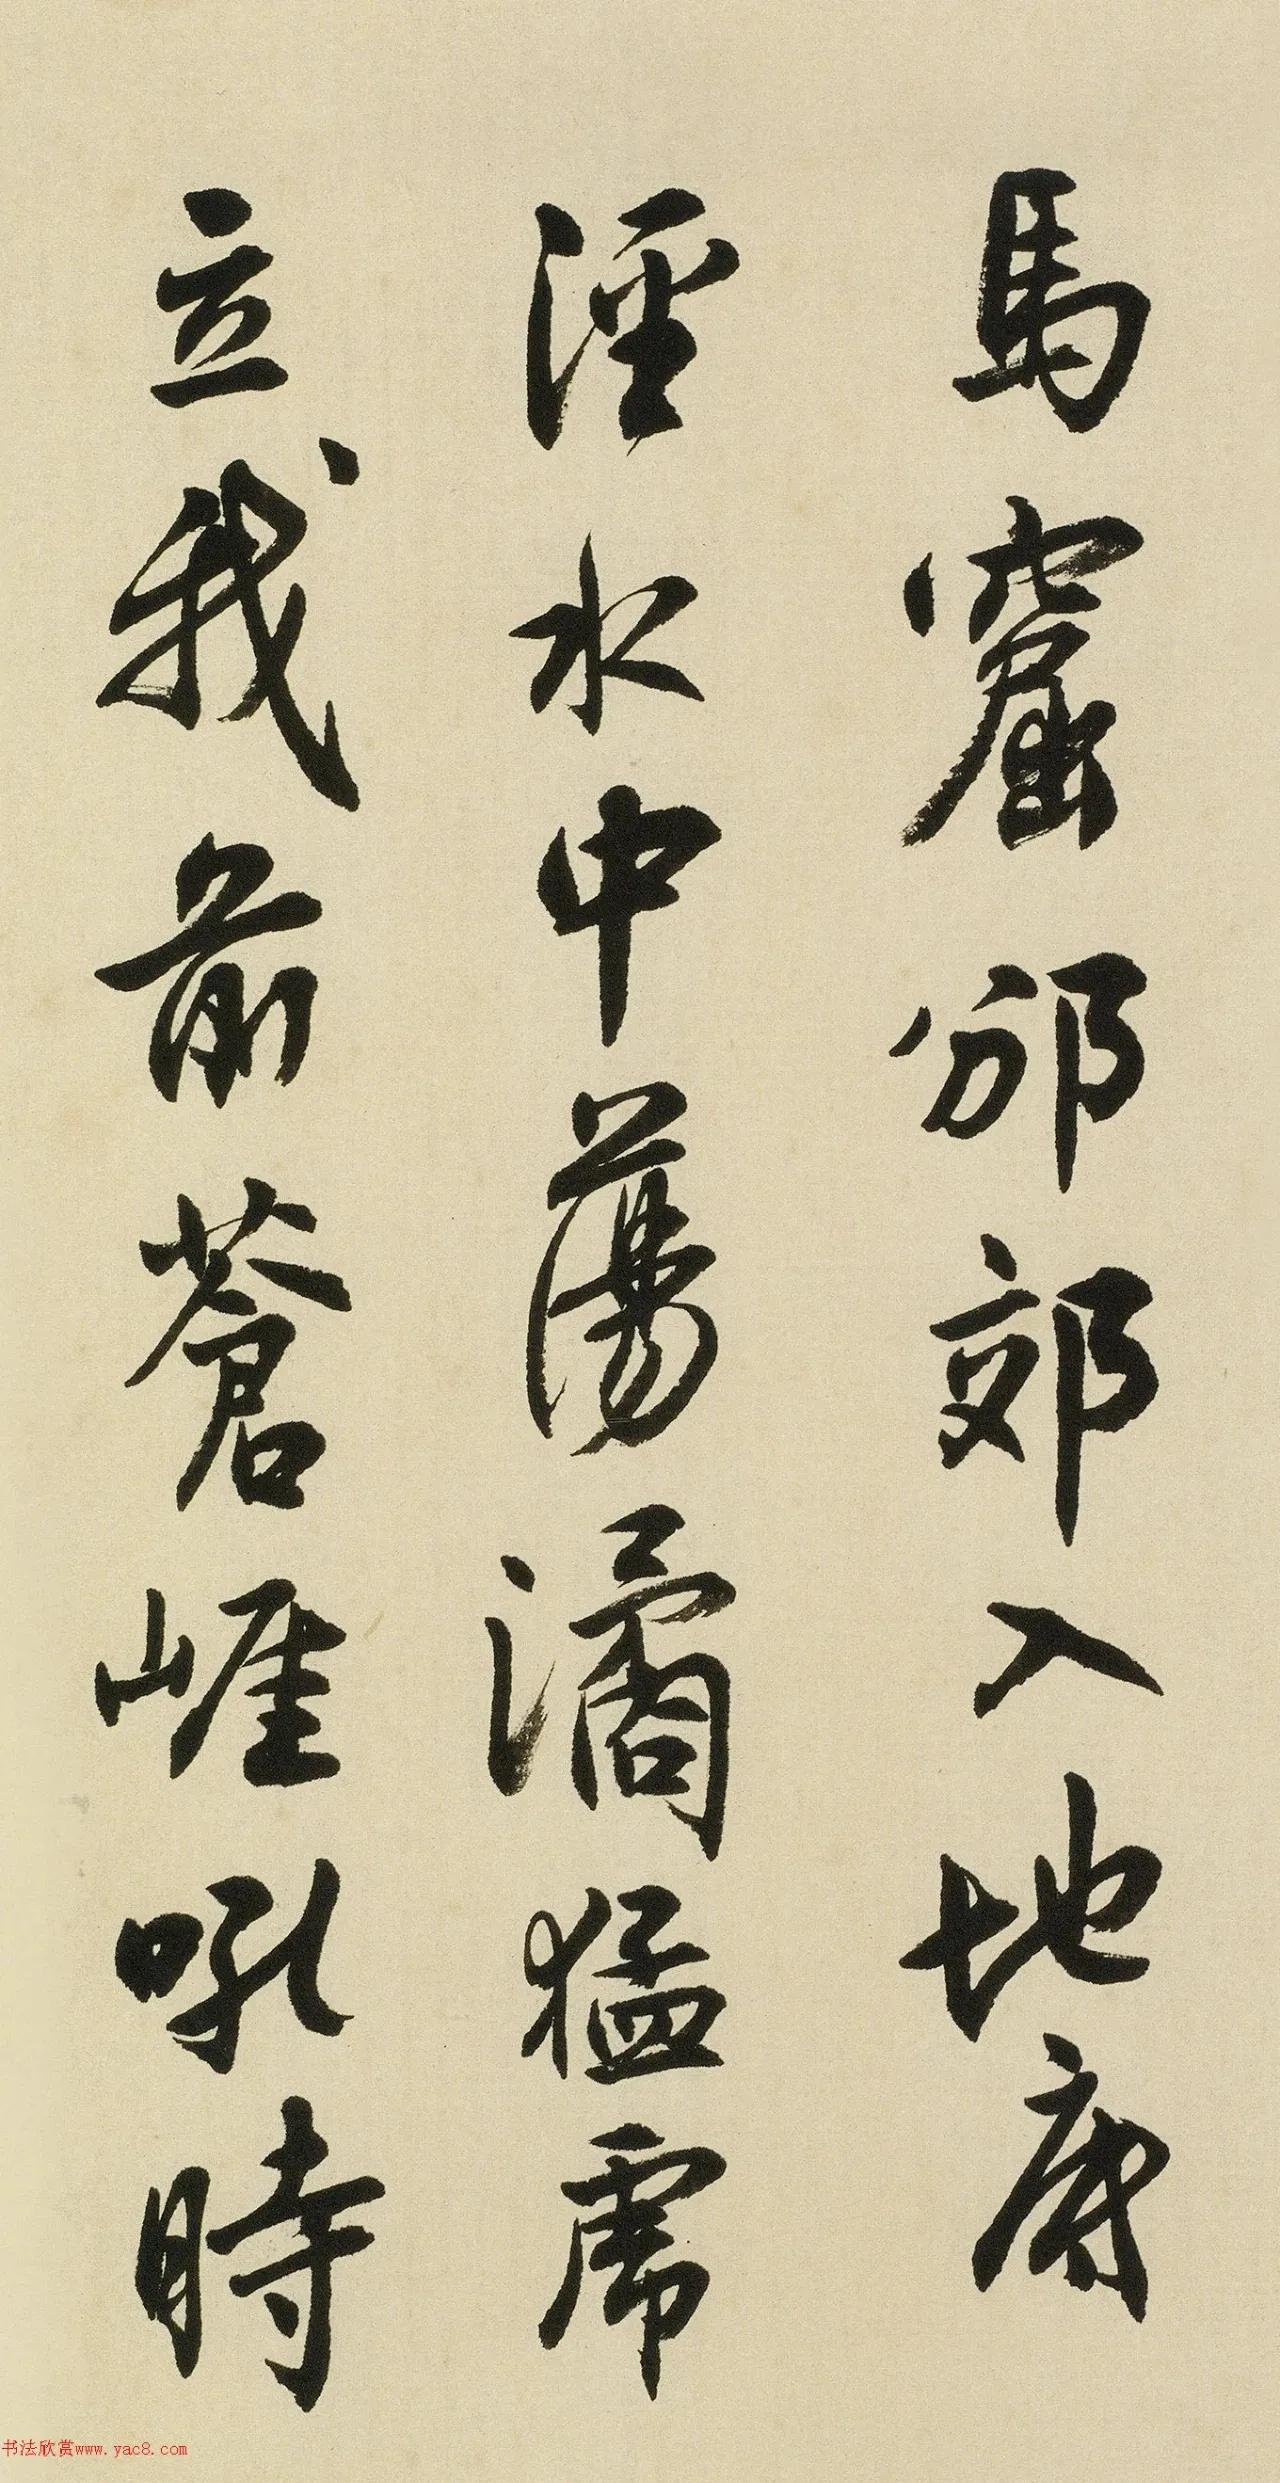 馬窟邠郊入地底
涇水中蕩潏猛虎
立我前蒼崖吼時
书法欣赏www.yac8.com